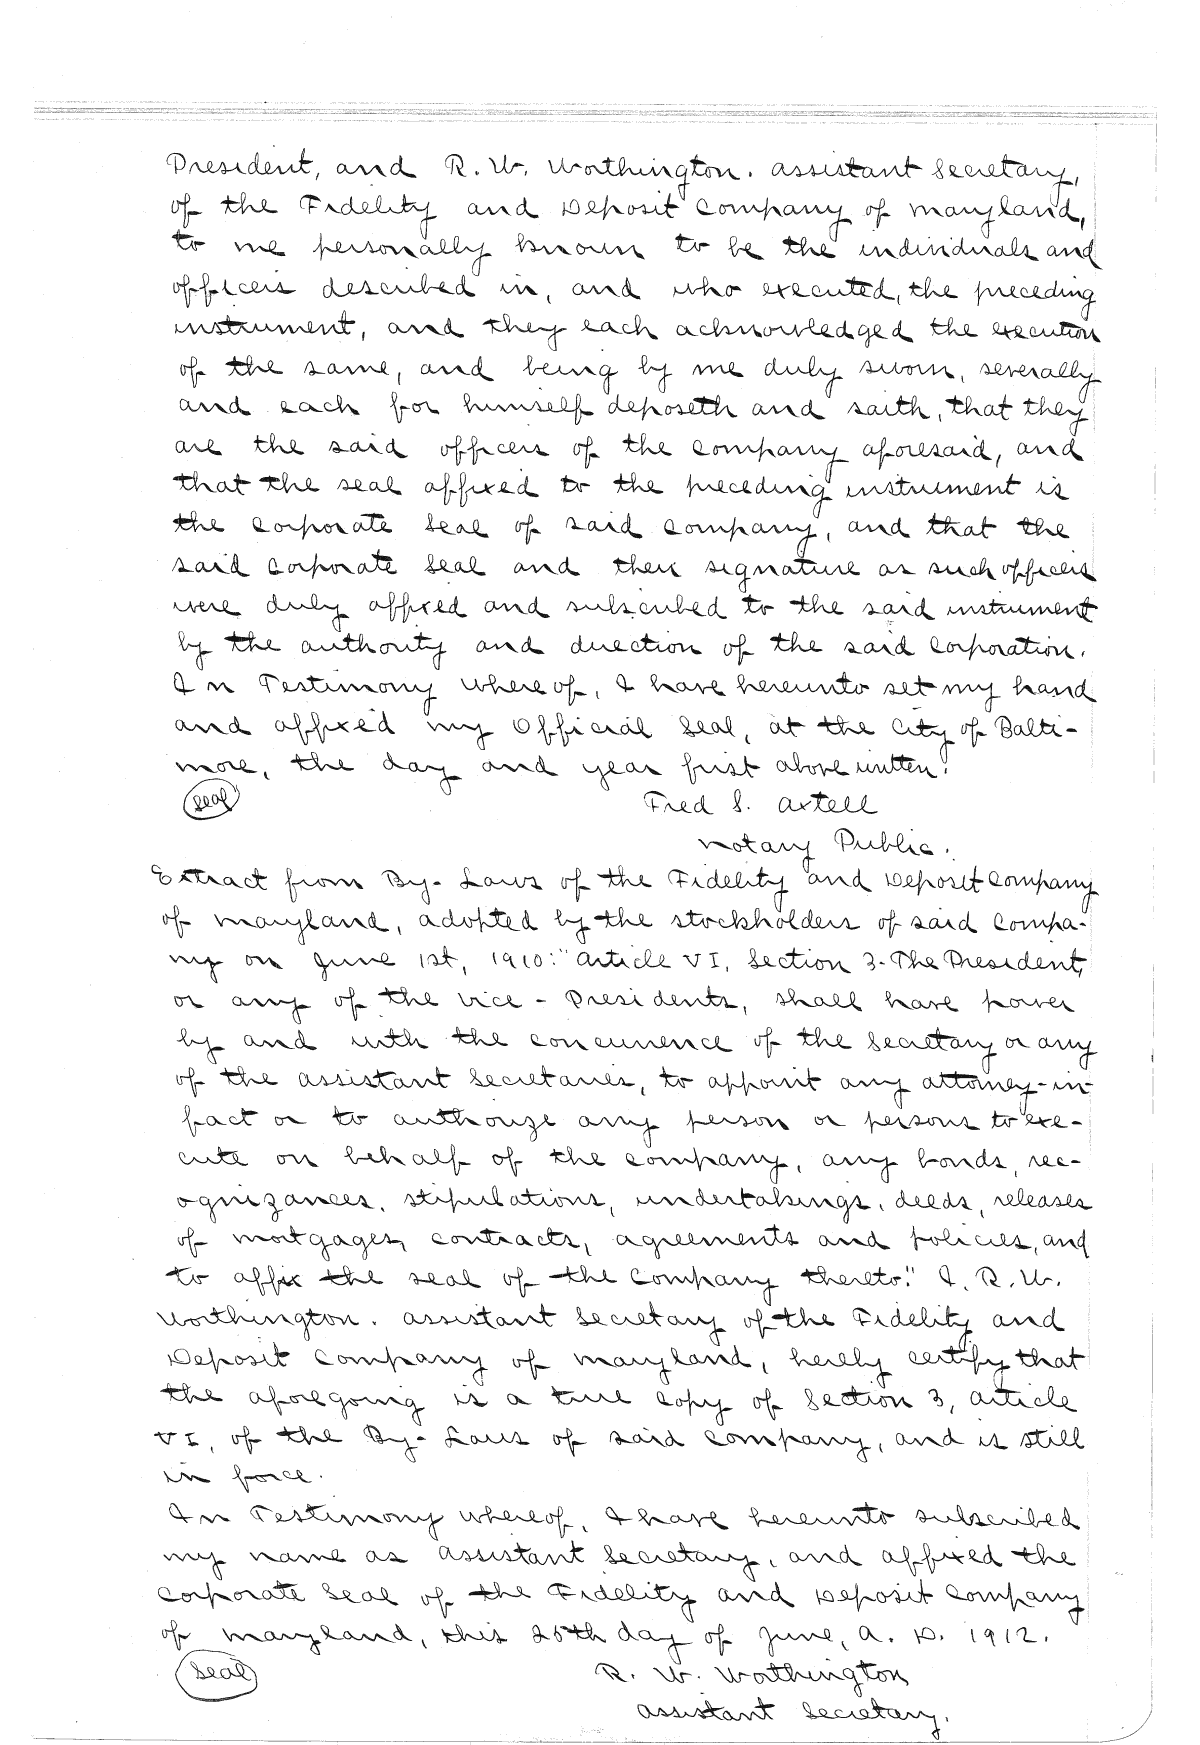 President, and R. W. Worthington. Assistant Secretary,
of the Fidelity and Deposit Company of Maryland,
to me personally known to be the individuals and
officers described in, and who executed, the preceding
instrument, and they each acknowledged the execution
of the same, and being by me duly sworn, severally
and each for himself deposeth and saith, that they
are the said officers of the Company aforesaid, and
that the seal affixed to the preceding instrument is
the Corporate Seal of said Company, and that the
said Corporate Seal and their signature as such officers
were duly affixed and subscribed to the said instrument
by the authority and direction of the said Corporation.
In Testimony Whereof, I have hereunto set my hand
and affixed my Official Seal, at the City of Balti-
more, the day and year first above written.
Seal
Fred S. Axtell
Notary Public.
Extract from By-Laws of the Fidelity and Deposit Company
of Maryland, adopted by the stockholders of said Compa-
ny on June 1st, 1910: "Article VI, Section 3-The President,
or any of the Vice-Presidents, shall have power
by and with the concurrence of the Secretary or any
of the Assistant Secretaries, to appoint any attorney-in-
fact or to authorize any person or persons to exe-
cute on behalf of the Company, any bonds, rec-
ognizances, stipulations, undertakings, deeds, releases
of mortgages, contracts, agreements and policies, and
to affix the seal of the Company thereto." I, R. W.
Worthington. Assistant Secretary of the Fidelity and
Deposit Company of Maryland, hereby certify that
the aforegoing is a true copy of Section 3, Article
VI, of the By-Laws of said Company, and is still
in force.
In Testimony whereof, I have hereunto subscribed
my name as Assistant Secretary, and affixed the
Corporate Seal of the Fidelity and Deposit Company
of Maryland, this 25th day of June, A. D. 1912.
Seal
R. W. Worthington
Assistant Secretary.